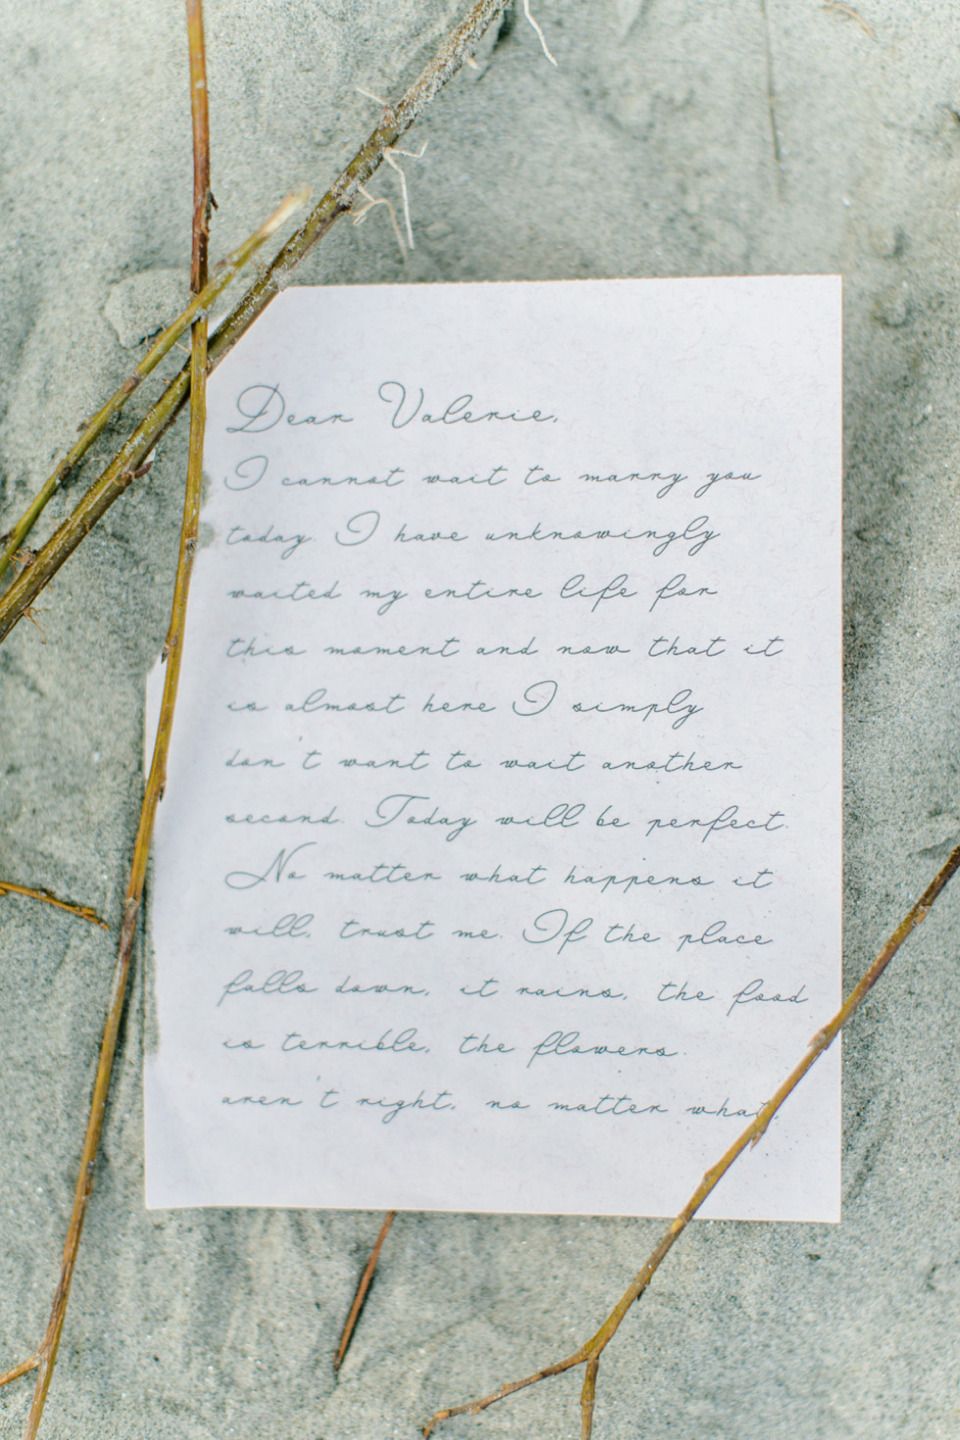 Dear Valerie,
I cannot wait to marry you
today. I have unknowingly
waited my entire life for
this moment and now that it
is almost here I simply
don't want to wait another
second. Today will be perfect.
No matter what happens it
will, trust me. If the place
falls down, it rains, the food
is terrible, the flowers.
aren't right, no matter what,